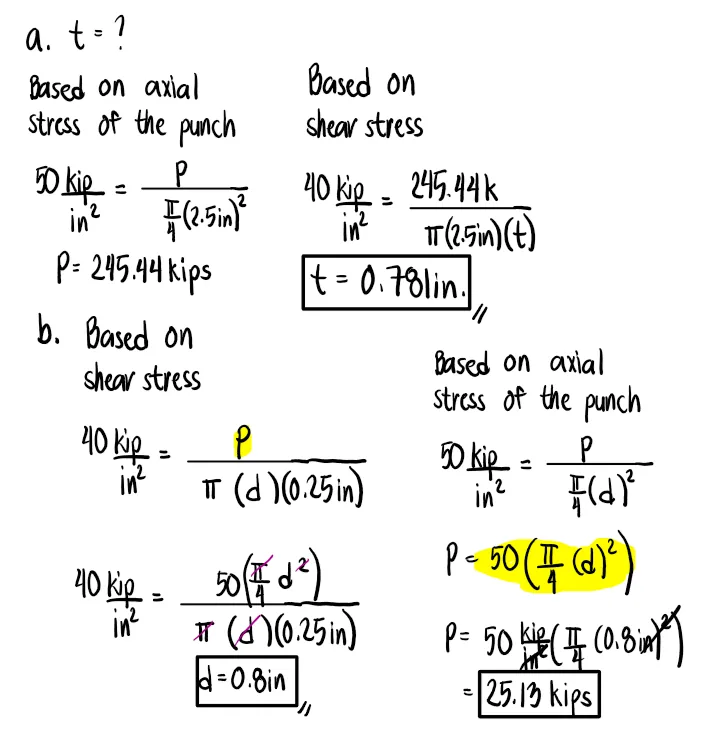 a. t = ?
Based on axial
stress of the punch
50 kip/in² = P / (π/4 (2.5in)²)
P = 245.44 kips
Based on
shear stress
40 kip/in² = 245.44k / (π(2.5in)(t))
t = 0.781in.
b. Based on
shear stress
40 kip/in² = P / (π (d)(0.25in))
40 kip/in² = 50(π/4 d²) / (π (d)(0.25in))
d = 0.8in
Based on axial
stress of the punch
50 kip/in² = P / (π/4 (d)²)
P = 50 (π/4 (d)²)
P = 50 kip/in² (π/4 (0.8in)²)
= 25.13 kips